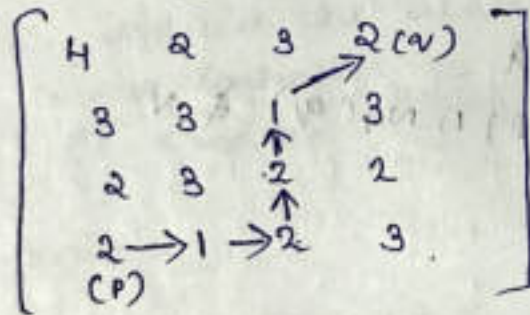 4 2 3 2 (q)
3 3 1 3
2 3 2 2
2 → 1 → 2 3
(P)